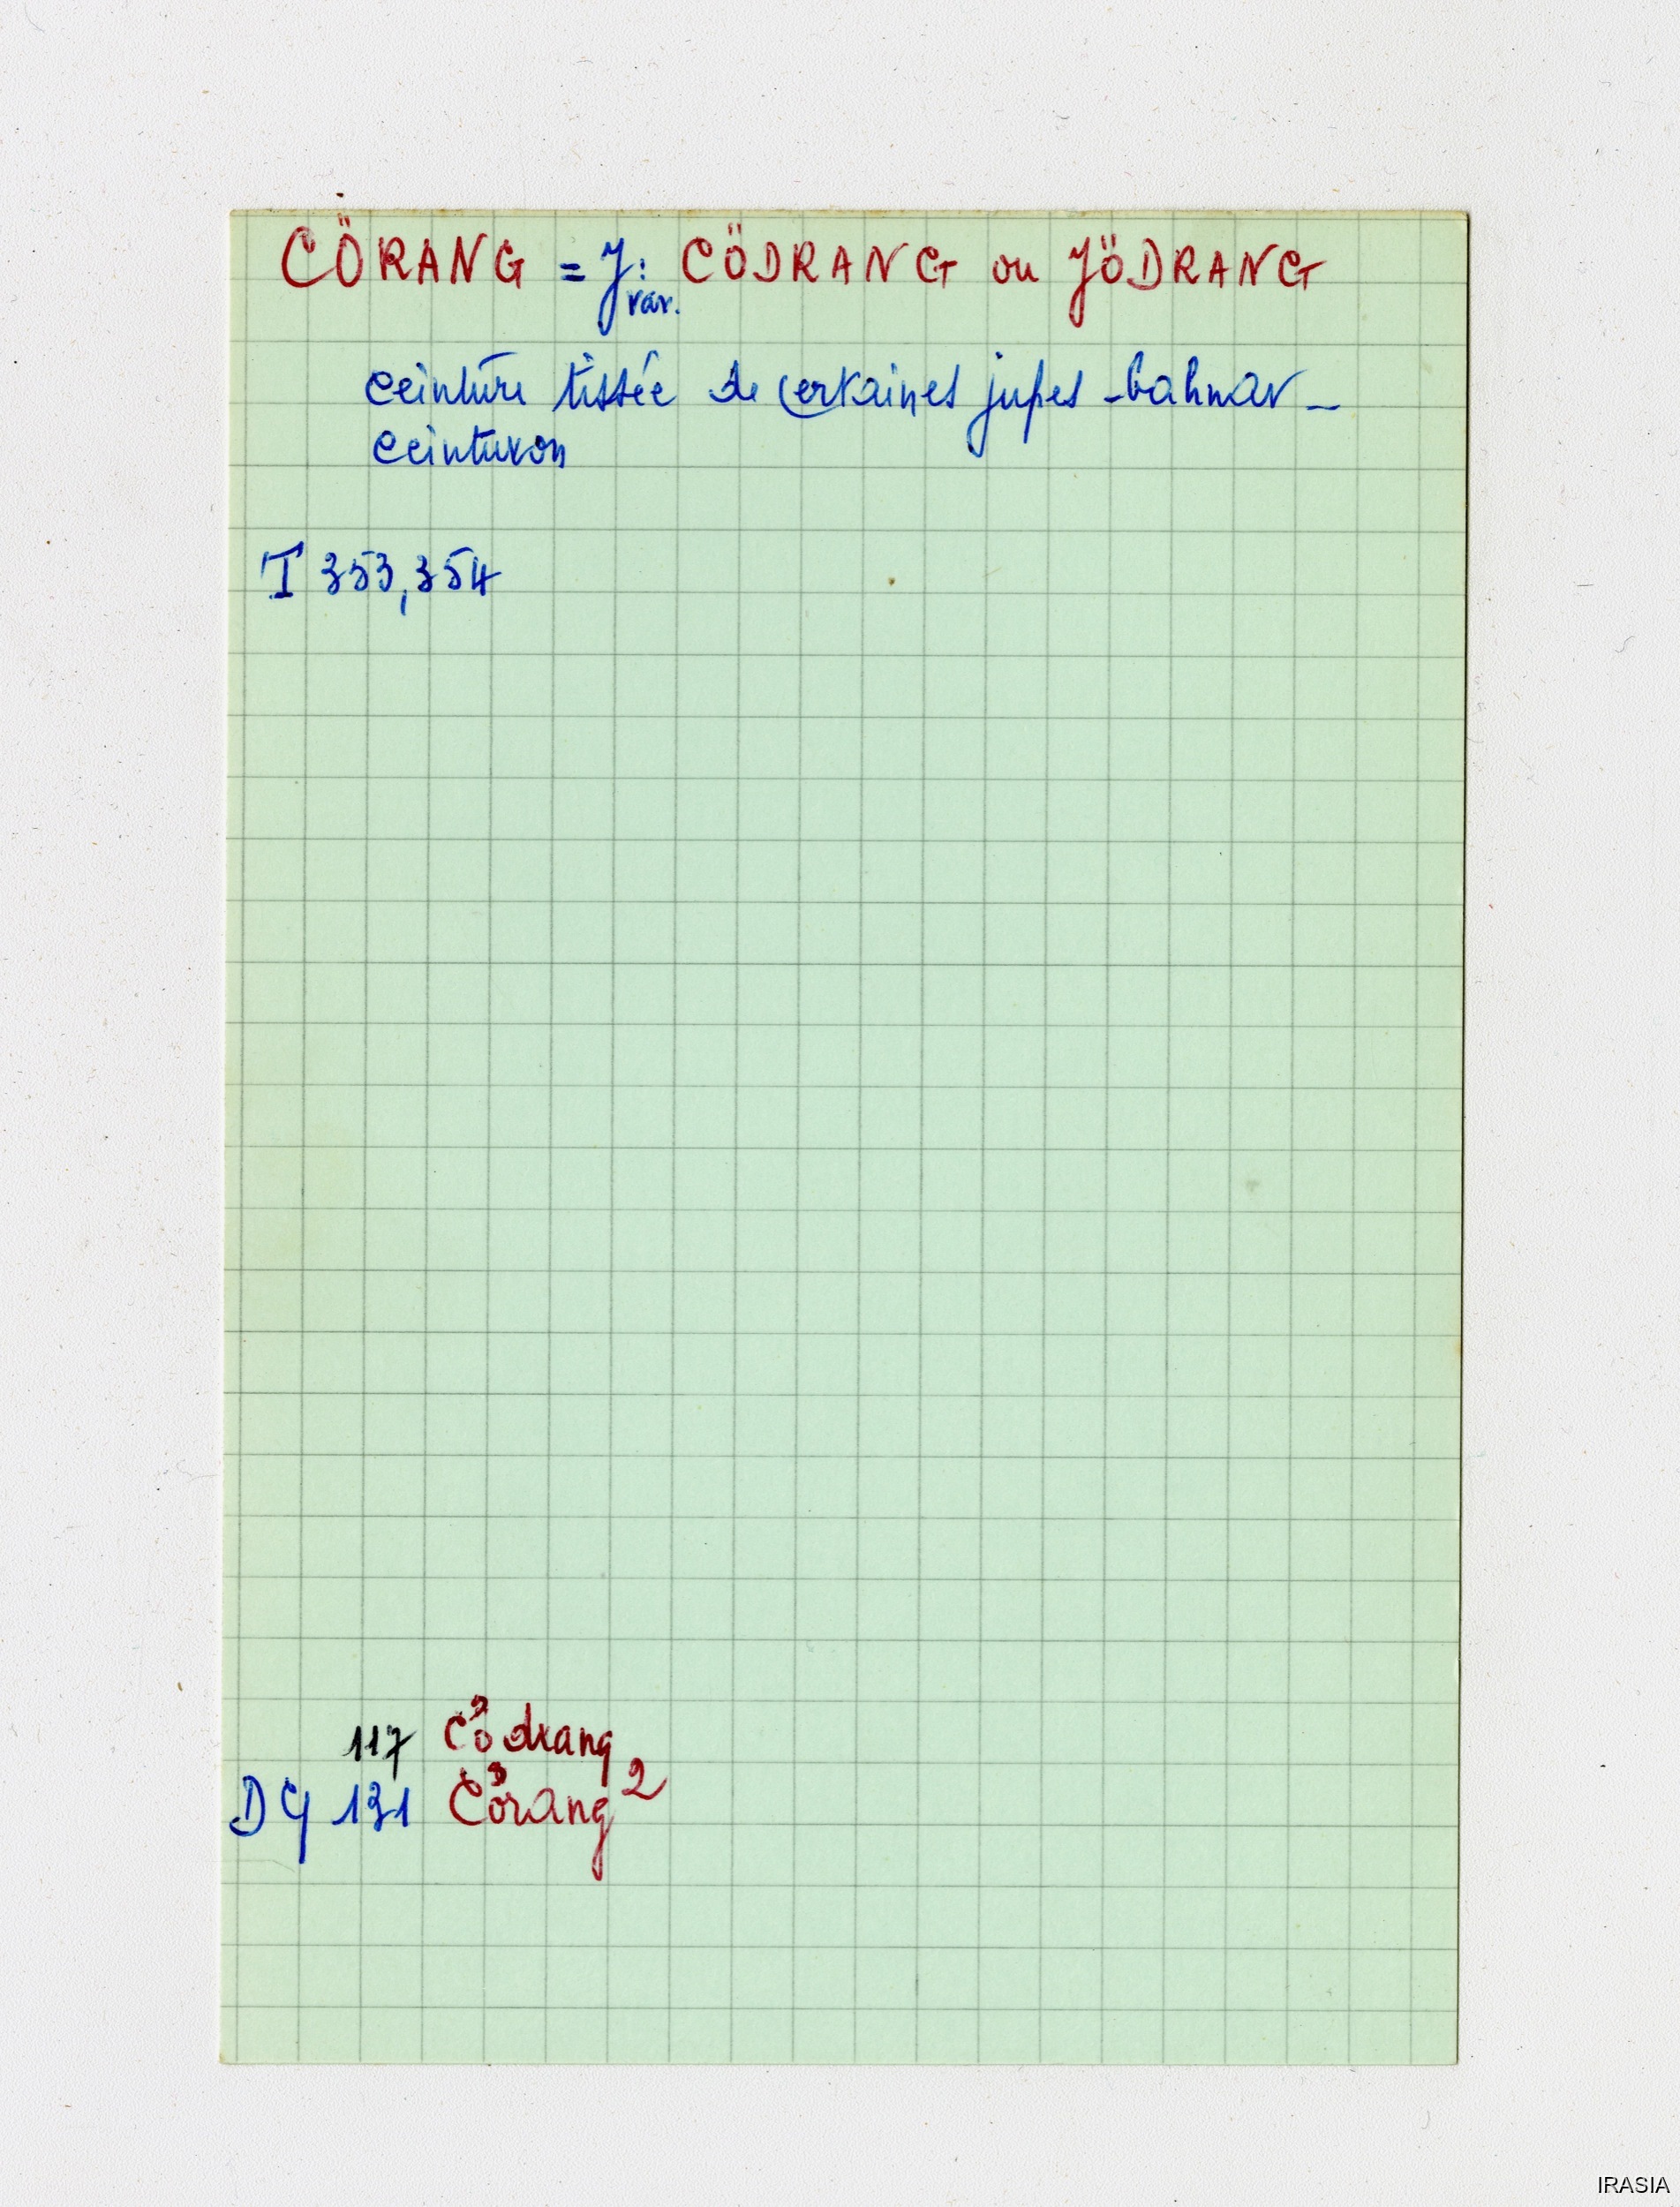 CÖRANG = J: CÖDRANG ou JÖDRANG
var.
ceinture tissée de certaines jupes - bahnar -
ceinturon
I 353, 354
117 Cödrang
DG 131 Cörang 2
IRASIA